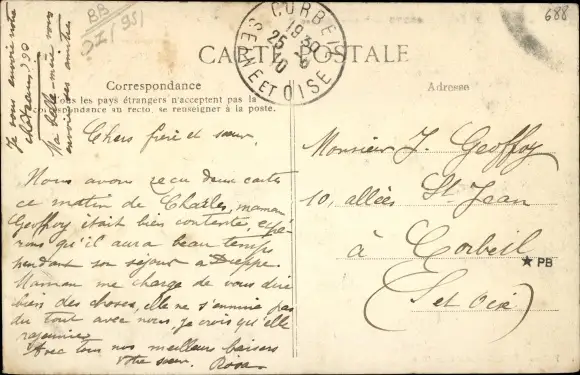 BB
688
CORBEIL
19 30
25 - 6
10
SEINE ET OISE
CARTE POSTALE
Correspondance
Tous les pays étrangers n'acceptent pas la
correspondance au recto, se renseigner à la poste.
Adresse
Je vous envoie notre
château
Ma belle-mère vous
envoie ses amitiés
Chers frère et sœur,
Nous avons reçu deux cartes
ce matin de Charles, maman
Geoffroy était bien contente, espé-
rons qu'il aura beau temps
pendant son séjour à Dieppe.
Maman me charge de vous dire
bien des choses, elle ne s'ennuie pas
du tout avec nous, je crois qu'elle
rajeunie.
Avec tous nos meilleurs baisers
Votre sœur. Rosa
Monsieur J. Geoffroy
10, allées St Jean
à Corbeil
(S et Oise)
★ PB